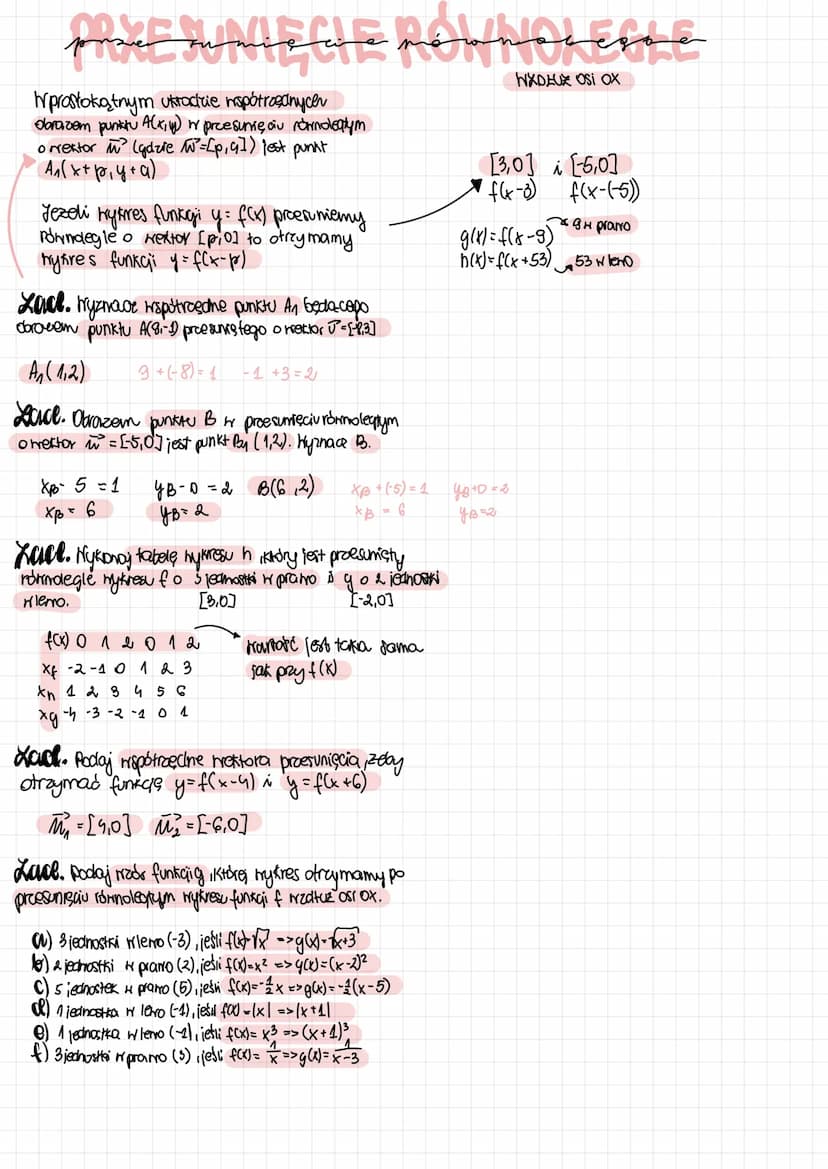 PRZESUNIĘCIE RÓWNOLEGŁE
przesunięcie równoległe
WZDŁUŻ OSI OX
W prostokątnym układzie współrzędnych
obrazem punktu A(x,y) w przesunięciu równoległym
o wektor w⃗ (gdzie w⃗=[p,q]) jest punkt
A₁(x+p, y+q)
Jeżeli wykres funkcji y=f(x) przesuniemy
równolegle o wektor [p,0] to otrzymamy
wykres funkcji y=f(x-p)
[3,0] i [-5,0]
f(x-3) f(x-(-5))
g(x)=f(x-9) 9 w prawo
h(x)=f(x+53) 53 w lewo
Zad. Wyznacz współrzędne punktu A₁ będącego
obrazem punktu A(9,-1) przesuniętego o wektor v⃗=[-8,3]
A₁(1,2) 9+(-8)=1 -1+3=2
Zad. Obrazem punktu B w przesunięciu równoległym
o wektor w⃗=[-5,0] jest punkt B₁(1,2). Wyznacz B.
xB-5=1 yB-0=2 B(6,2) xB+(-5)=1 yB+0=2
xB=6 yB=2 xB=6 yB=2
Zad. Wykonaj tabelę wykresu h, który jest przesunięty
równolegle wykresu f o 3 jednostki w prawo i g o 2 jednostki
w lewo. [3,0] [-2,0]
f(x) 0 1 2 0 1 2 wartość jest taka sama
xf -2 -1 0 1 2 3 jak przy f(x)
xh 1 2 3 4 5 6
xg -4 -3 -2 -1 0 1
Zad. Podaj współrzędne wektora przesunięcia, żeby
otrzymać funkcję y=f(x-4) i y=f(x+6)
u⃗₁=[4,0] u⃗₂=[-6,0]
Zad. Podaj wzór funkcji g, której wykres otrzymamy po
przesunięciu równoległym wykresu funkcji f wzdłuż osi OX.
a) 3 jednostki w lewo (-3), jeśli f(x)=√x => g(x)=√x+3
b) 2 jednostki w prawo (2), jeśli f(x)=x² => g(x)=(x-2)²
c) 5 jednostek w prawo (5), jeśli f(x)=-½x => g(x)=-½(x-5)
d) 1 jednostka w lewo (-1), jeśli f(x)=|x| => |x+1|
e) 1 jednostka w lewo (-1), jeśli f(x)=x³ => (x+1)³
f) 3 jednostki w prawo (3), jeśli f(x)=1/x => g(x)=1/x-3